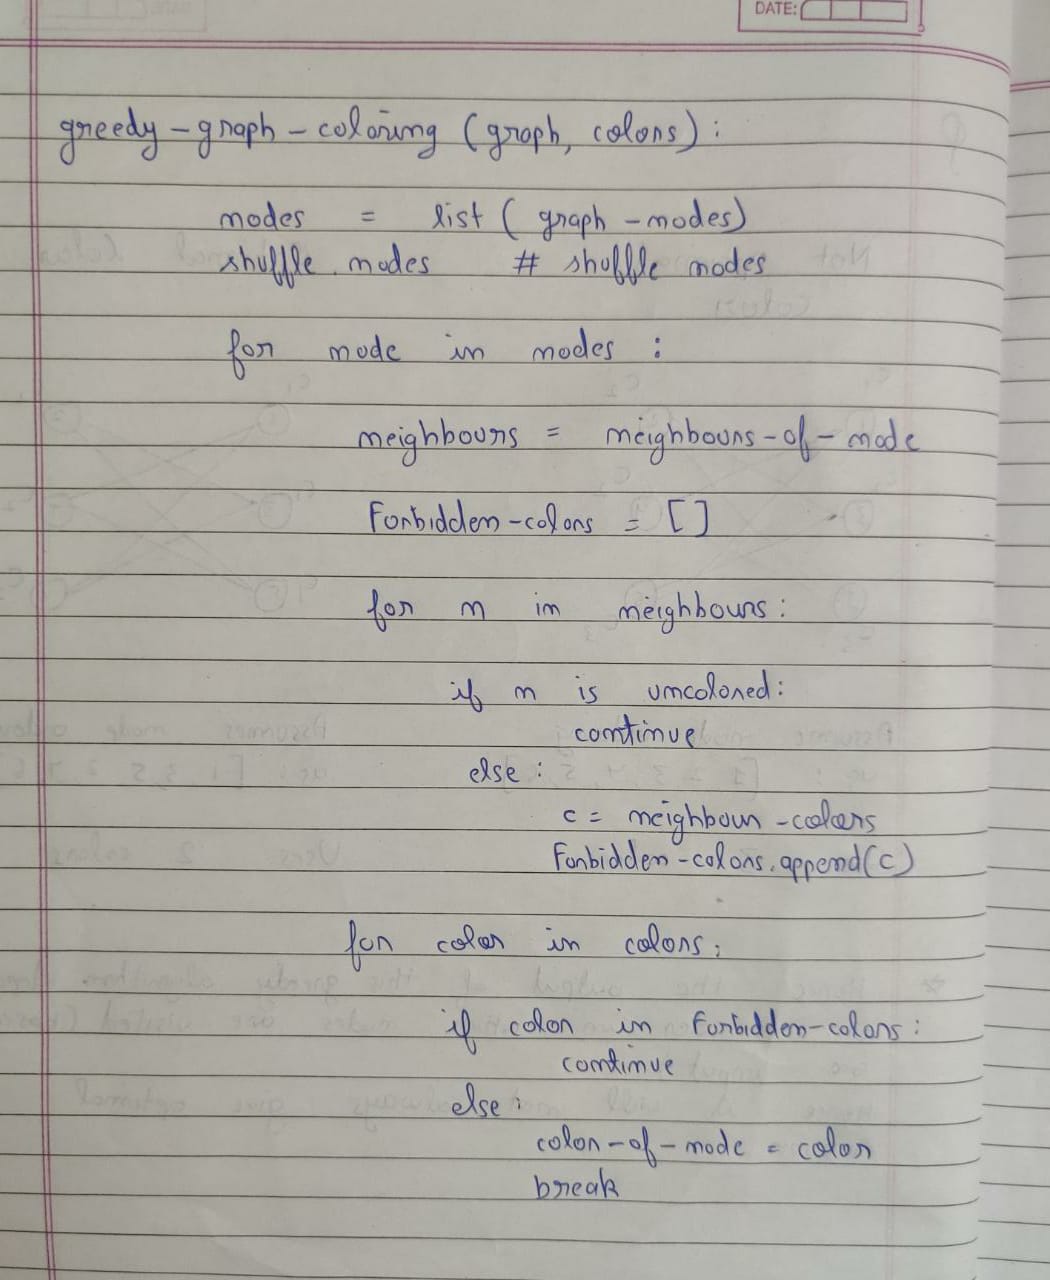 DATE:
greedy-graph-coloring (graph, colors):
nodes = list (graph-nodes)
shuffle.nodes # shuffle nodes
for node in nodes :
neighbours = neighbours-of-node
Forbidden-colors = []
for n in neighbours:
if n is uncolored:
continue
else:
c = neighbour-colors
Forbidden-colors.append(c)
for color in colors:
if color in Forbidden-colors:
continue
else:
color-of-node = color
break